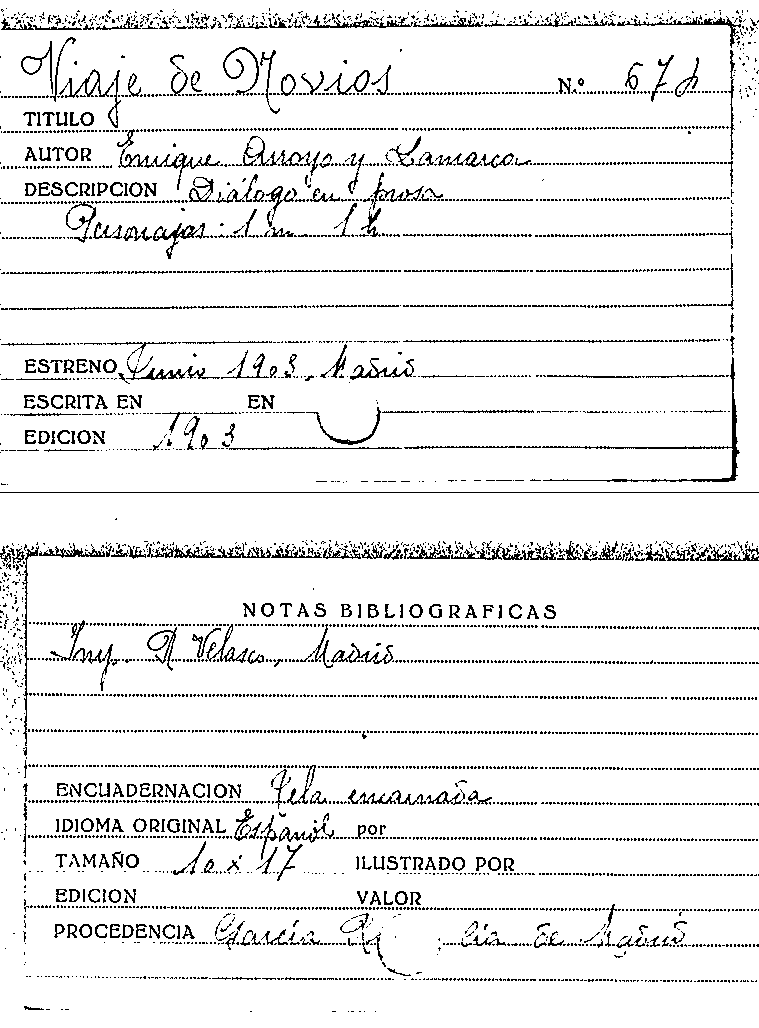 Viaje de Novios N.º 674
TITULO
AUTOR Enrique Arroyo y Lamarca
DESCRIPCION Diálogo en prosa
Personajes: 1 m. 1 h.
ESTRENO Junio 1903. Madrid
ESCRITA EN EN
EDICION 1903
NOTAS BIBLIOGRAFICAS
Imp. R Velasco, Madrid
ENCUADERNACION Tela encarnada
IDIOMA ORIGINAL Español por
TAMAÑO 10 x 17 ILUSTRADO POR
EDICION VALOR
PROCEDENCIA García de Madrid